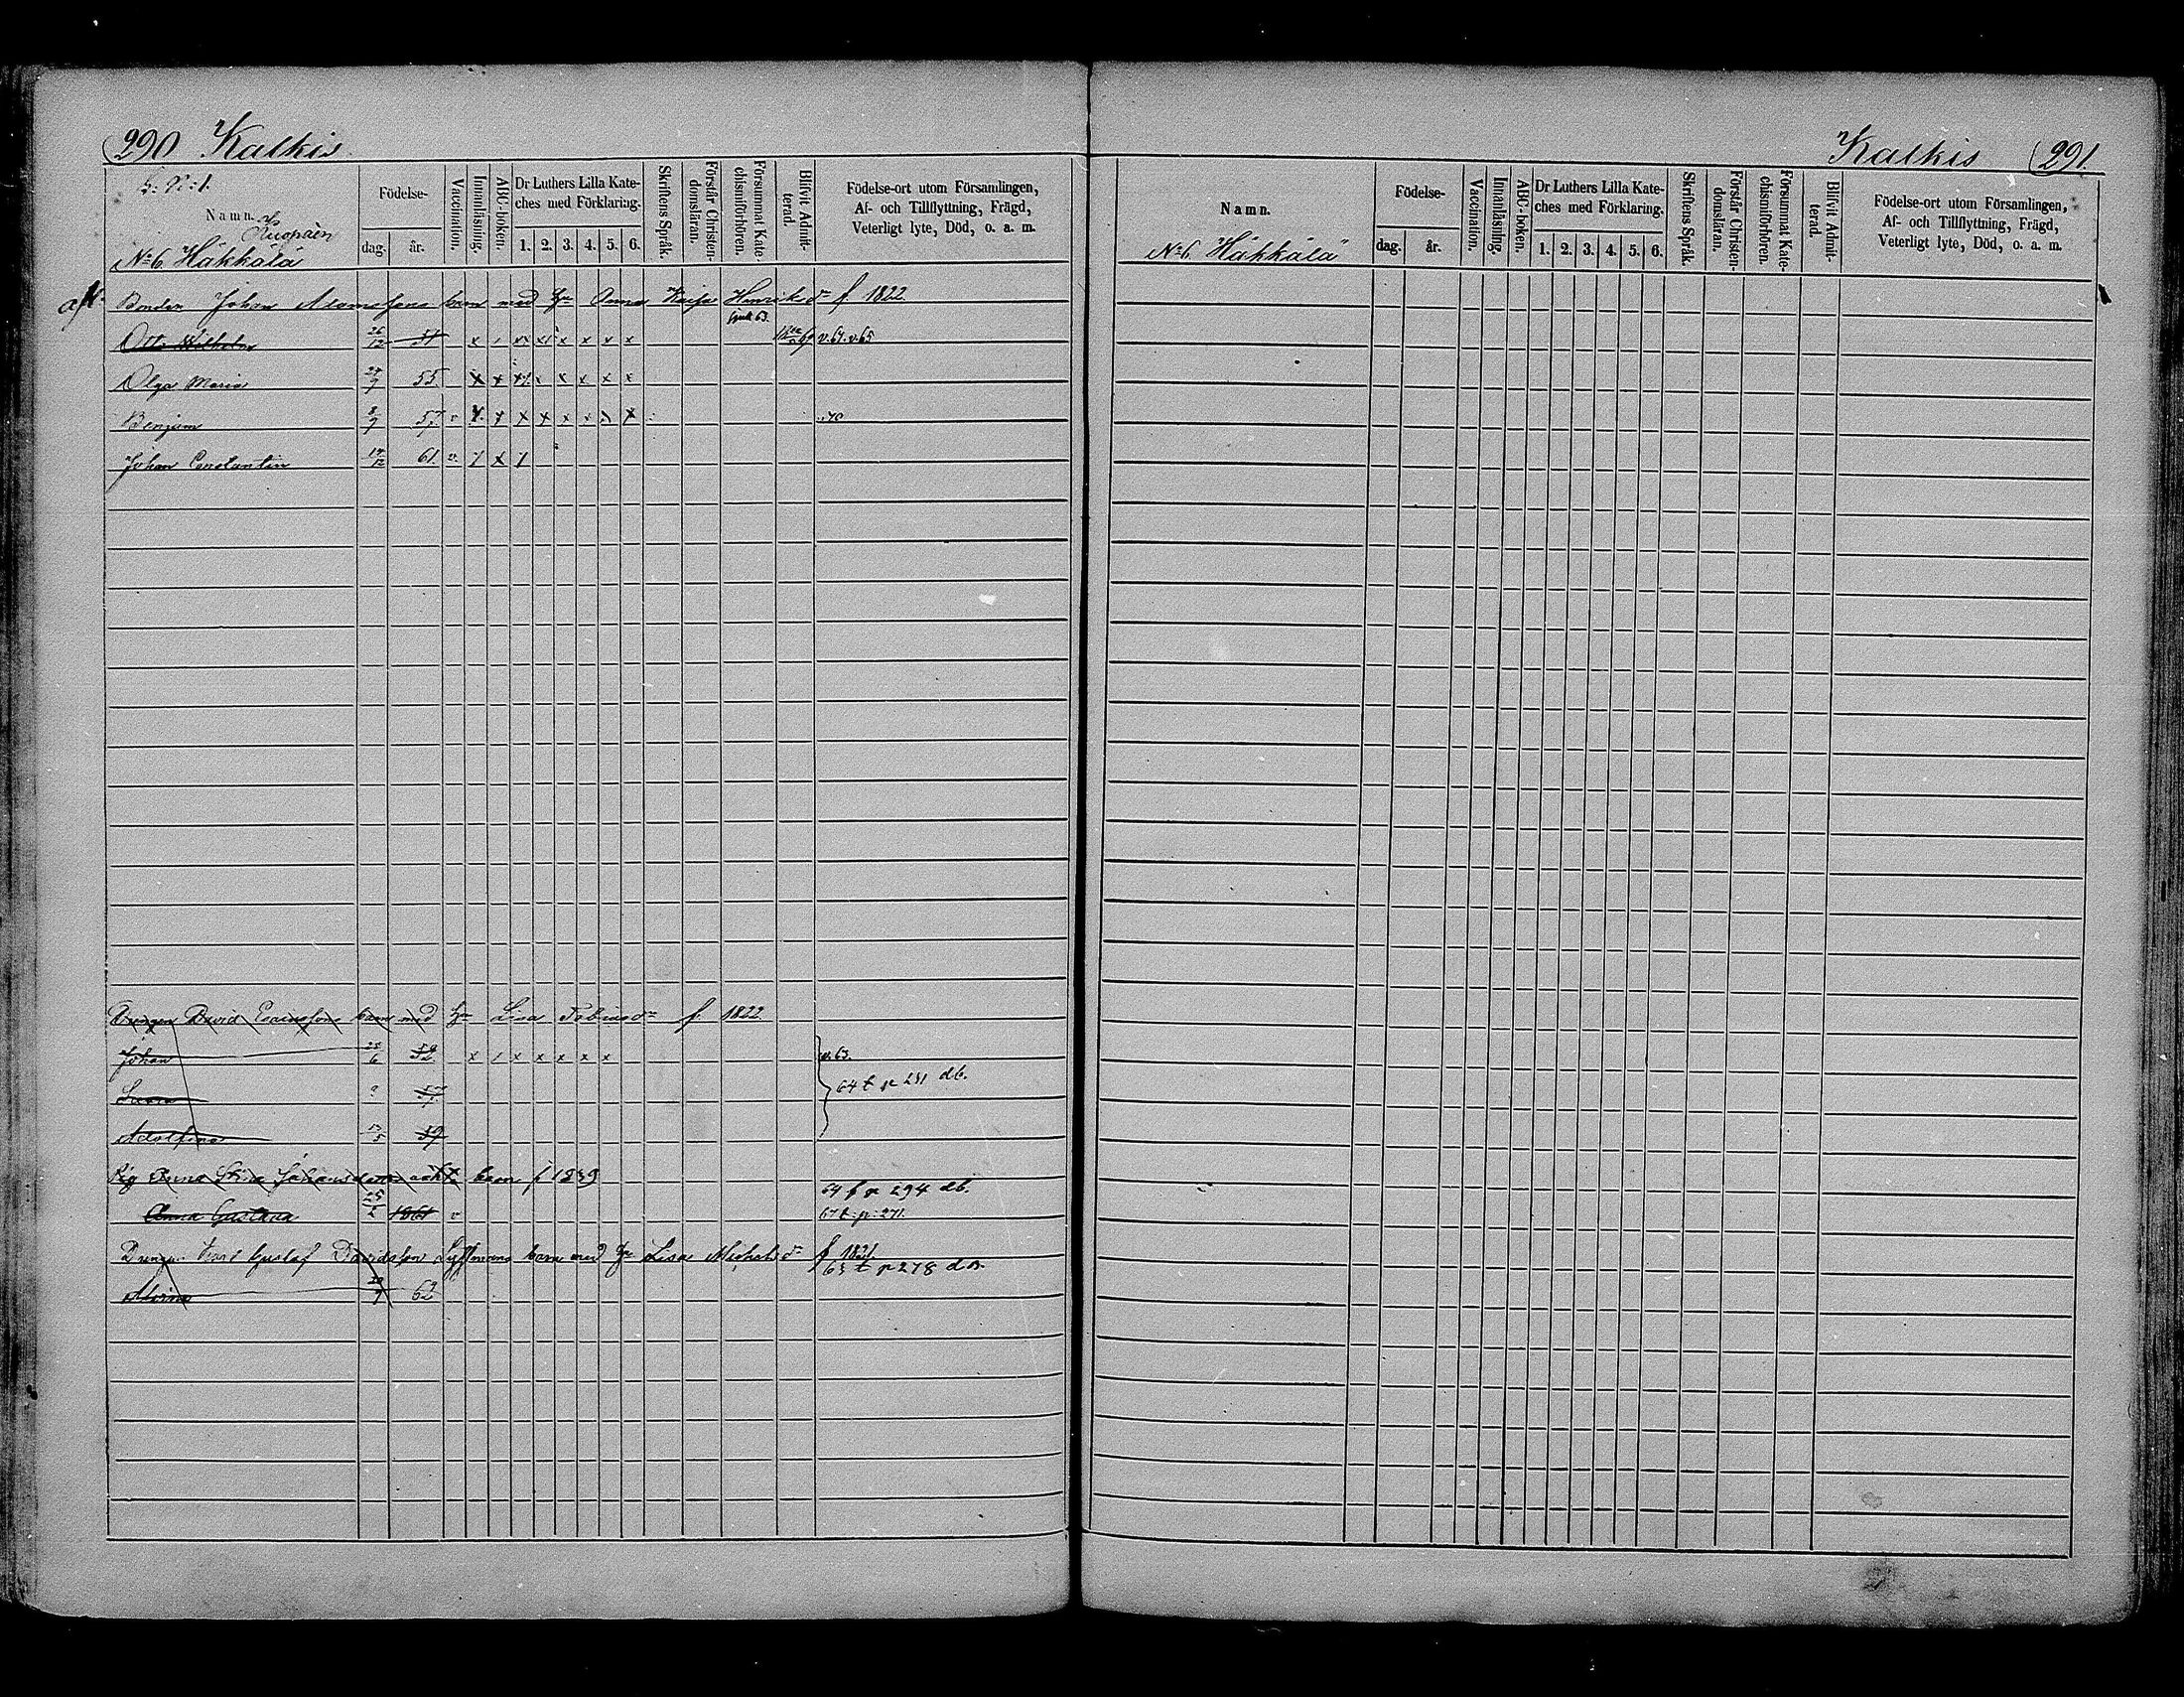 290 Kalkis
Namn.
Kuopaen
No 6. Häkkälä
Födelse-
dag. år.
Vaccination.
Innanläsning.
ABC-boken.
Dr Luthers Lilla Kate-
ches med Förklaring.
1. 2. 3. 4. 5. 6.
Skriftens Språk.
Förstår Christen-
domsläran.
Försummat Kate-
chismiförhören.
Blifvit Admit-
terad.
Födelse-ort utom Församlingen,
Af- och Tillflyttning, Frägd,
Veterligt lyte, Död, o. a. m.
Bonden Johan Adamssons barn med Hu Anna Kaisa Henriksdr f. 1822.
Otto Wilhelm 26/12 51 x / xx x x x x v.64. v.65
Olga Maria 7 55 x x x x x x x
Benjam 8/9 57 v x x x x x x x x 70
Johan Constantin 12 61. v. / x /
Drengen David Esaiassons barn med Hu Lisa Tobiasdr f. 1822
Johan 6 52 x / x x x x x v.63.
64 t p 251 db.
57
Adolfina 5 59
Pig Anna Stina Johansdotters oäkta barn f 1839
64 f p 294 db.
Anna Gustava 25 1861 v 67 t: p: 271.
Drengen Karl Gustaf Davidsson barn med Hu Lisa Michelsdr f 1821.
63 t p 278 db.
62
Kalkis 291.
Namn.
No 6. Häkkälä
Födelse-
dag. år.
Vaccination.
Innanläsning.
ABC-boken.
Dr Luthers Lilla Kate-
ches med Förklaring.
1. 2. 3. 4. 5. 6.
Skriftens Språk.
Förstår Christen-
domsläran.
Försummat Kate-
chismiförhören.
Blifvit Admit-
terad.
Födelse-ort utom Församlingen,
Af- och Tillflyttning, Frägd,
Veterligt lyte, Död, o. a. m.